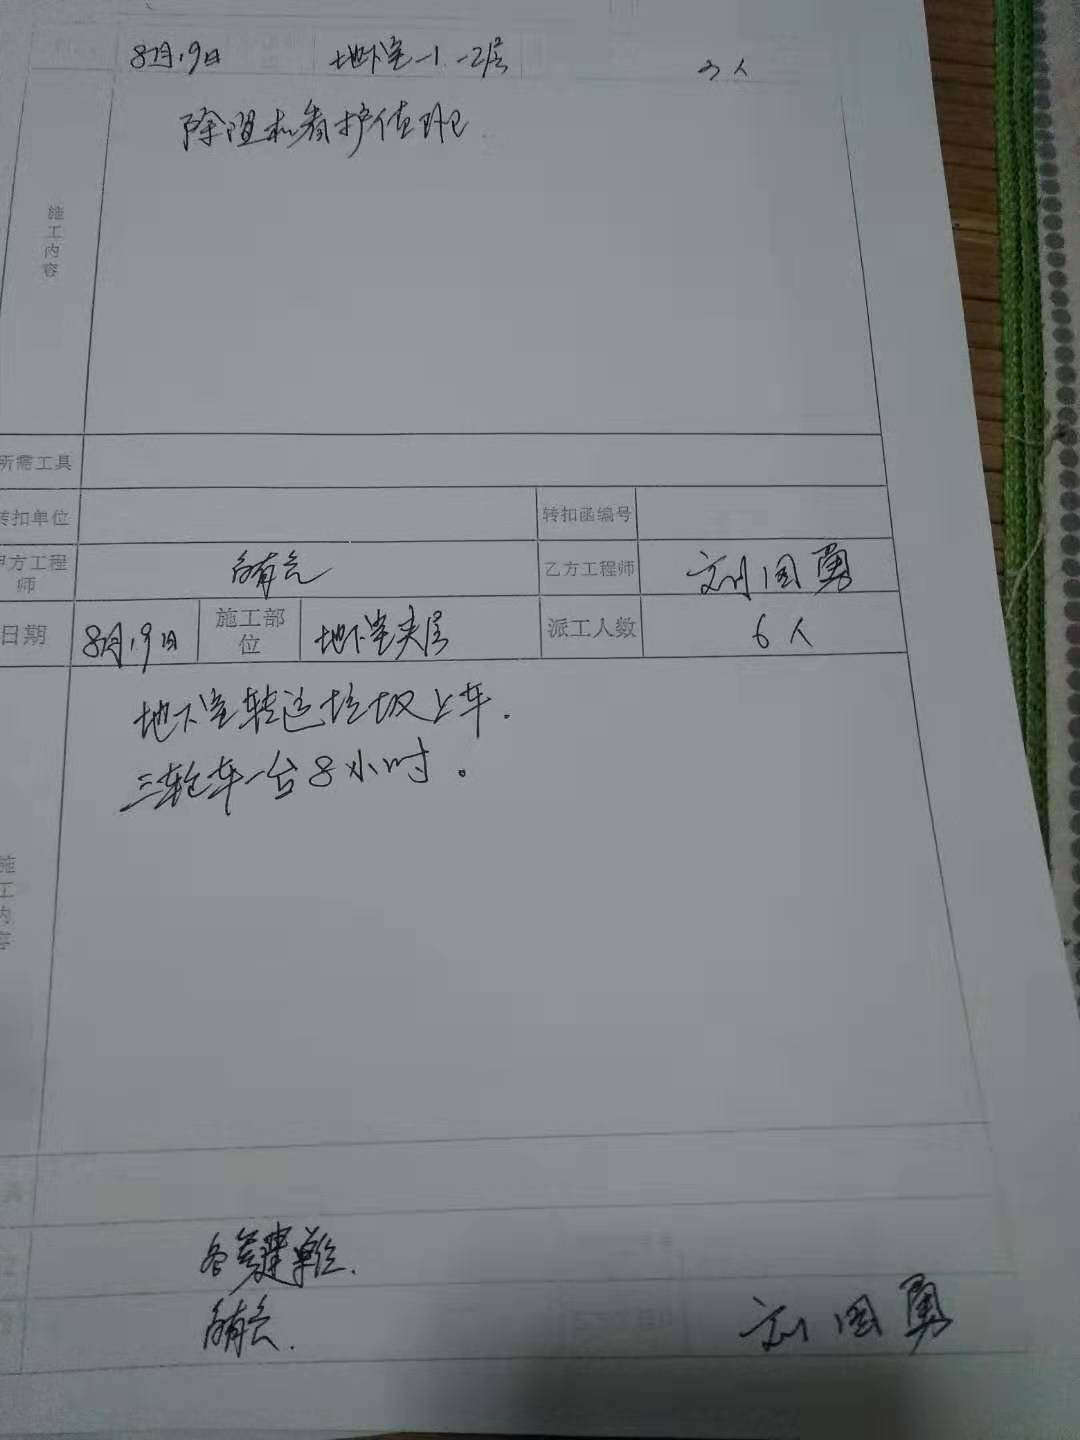 8月19日 地下室-1 -2层 2人
施工内容
除湿机看护值班
所需工具
转扣单位 转扣函编号
甲方工程师 乙方工程师 刘国勇
日期 8月19日 施工部位 地下室夹层 派工人数 6人
施工内容
地下室转运垃圾上车.
三轮车一台8小时。
各 单位.
刘国勇